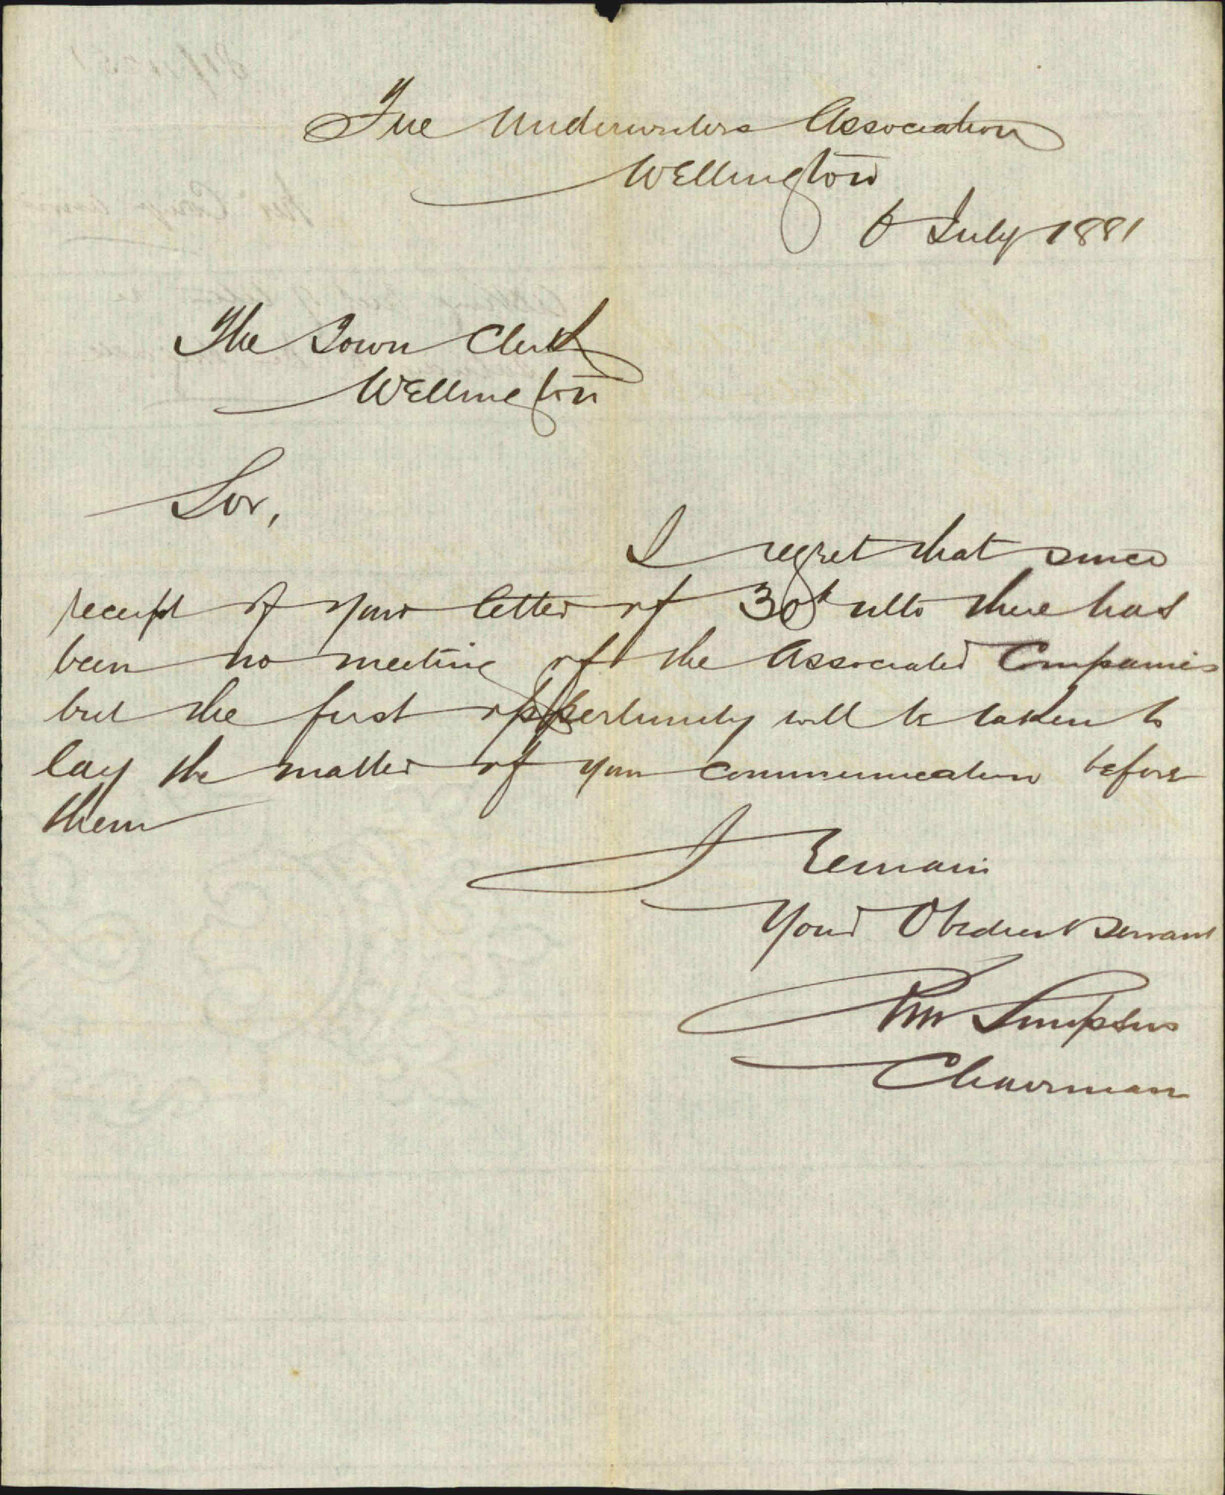 Fire Underwriters Association
Wellington
6 July 1881
The Town Clerk
Wellington
Sir,
I regret that since
receipt of your letter of 30th ulto there has
been no meeting of the Associated Companies
but the first opportunity will be taken to
lay the matter of your communication before
them
I remain
Your Obedient Servant
Simpson
Chairman